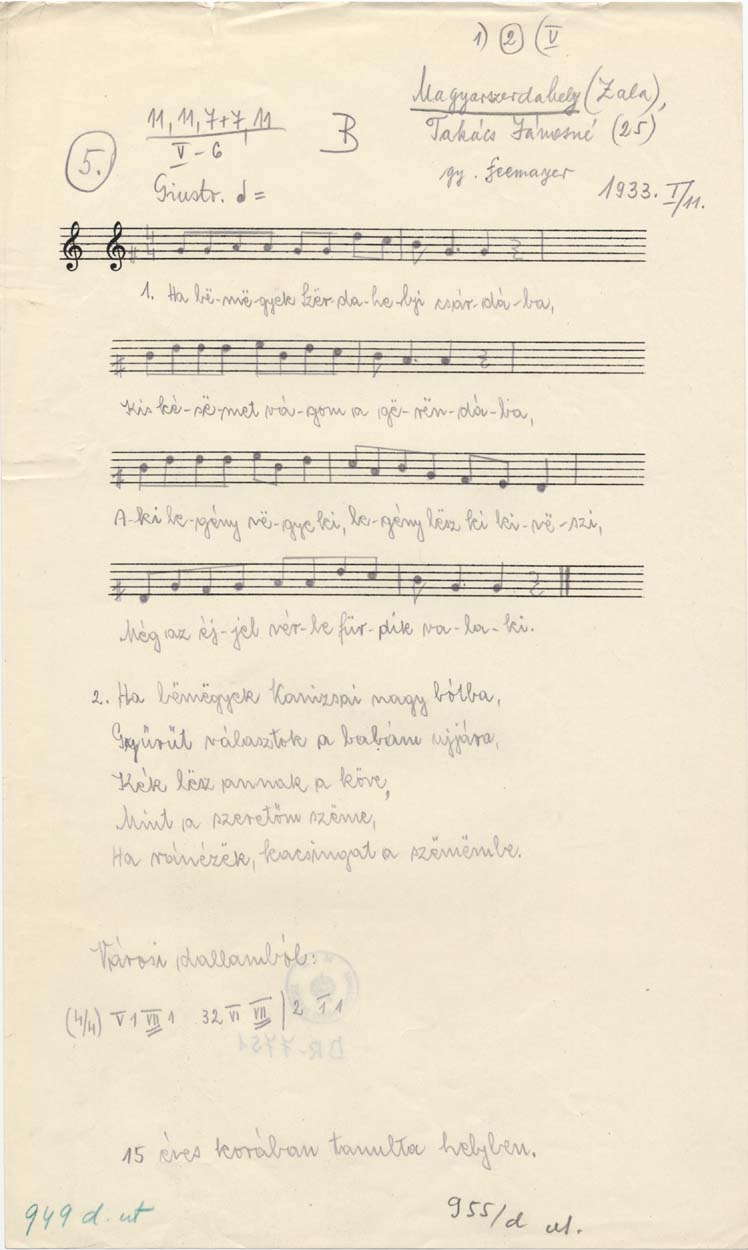 1) 2 (V
Magyarszerdahely (Zala),
11, 11, 7+7, 11
B
Takács Jánosné (25)
5.
V - 6
gy. Seemayer
Giusto. d =
1933. I/11.
1. Ha bë-më-gyëk Szër-da-he-lyi csár-dá-ba,
Kis ké-së-met vá-gom a gë-rën-dá-ba,
A-ki le-gény vë-gye ki, le-gény lësz ki ki-vë-szi,
Még az éj-jel vér-be für-dik va-la-ki.
2. Ha bëmëgyek Kanizsai nagy bótba,
Gyűrűt választok a babám ujjára,
Kék lësz annak a köve,
Mint a szeretőm szëme,
Ha ránézëk, kacsingat a szëmëmbe.
Városi dallamból:
(4/4) V 1 VII 1 32 VI VII | 2 1 1
DR-7751
15 éves korában tanulta helyben.
949 d. ut
955/d ut.